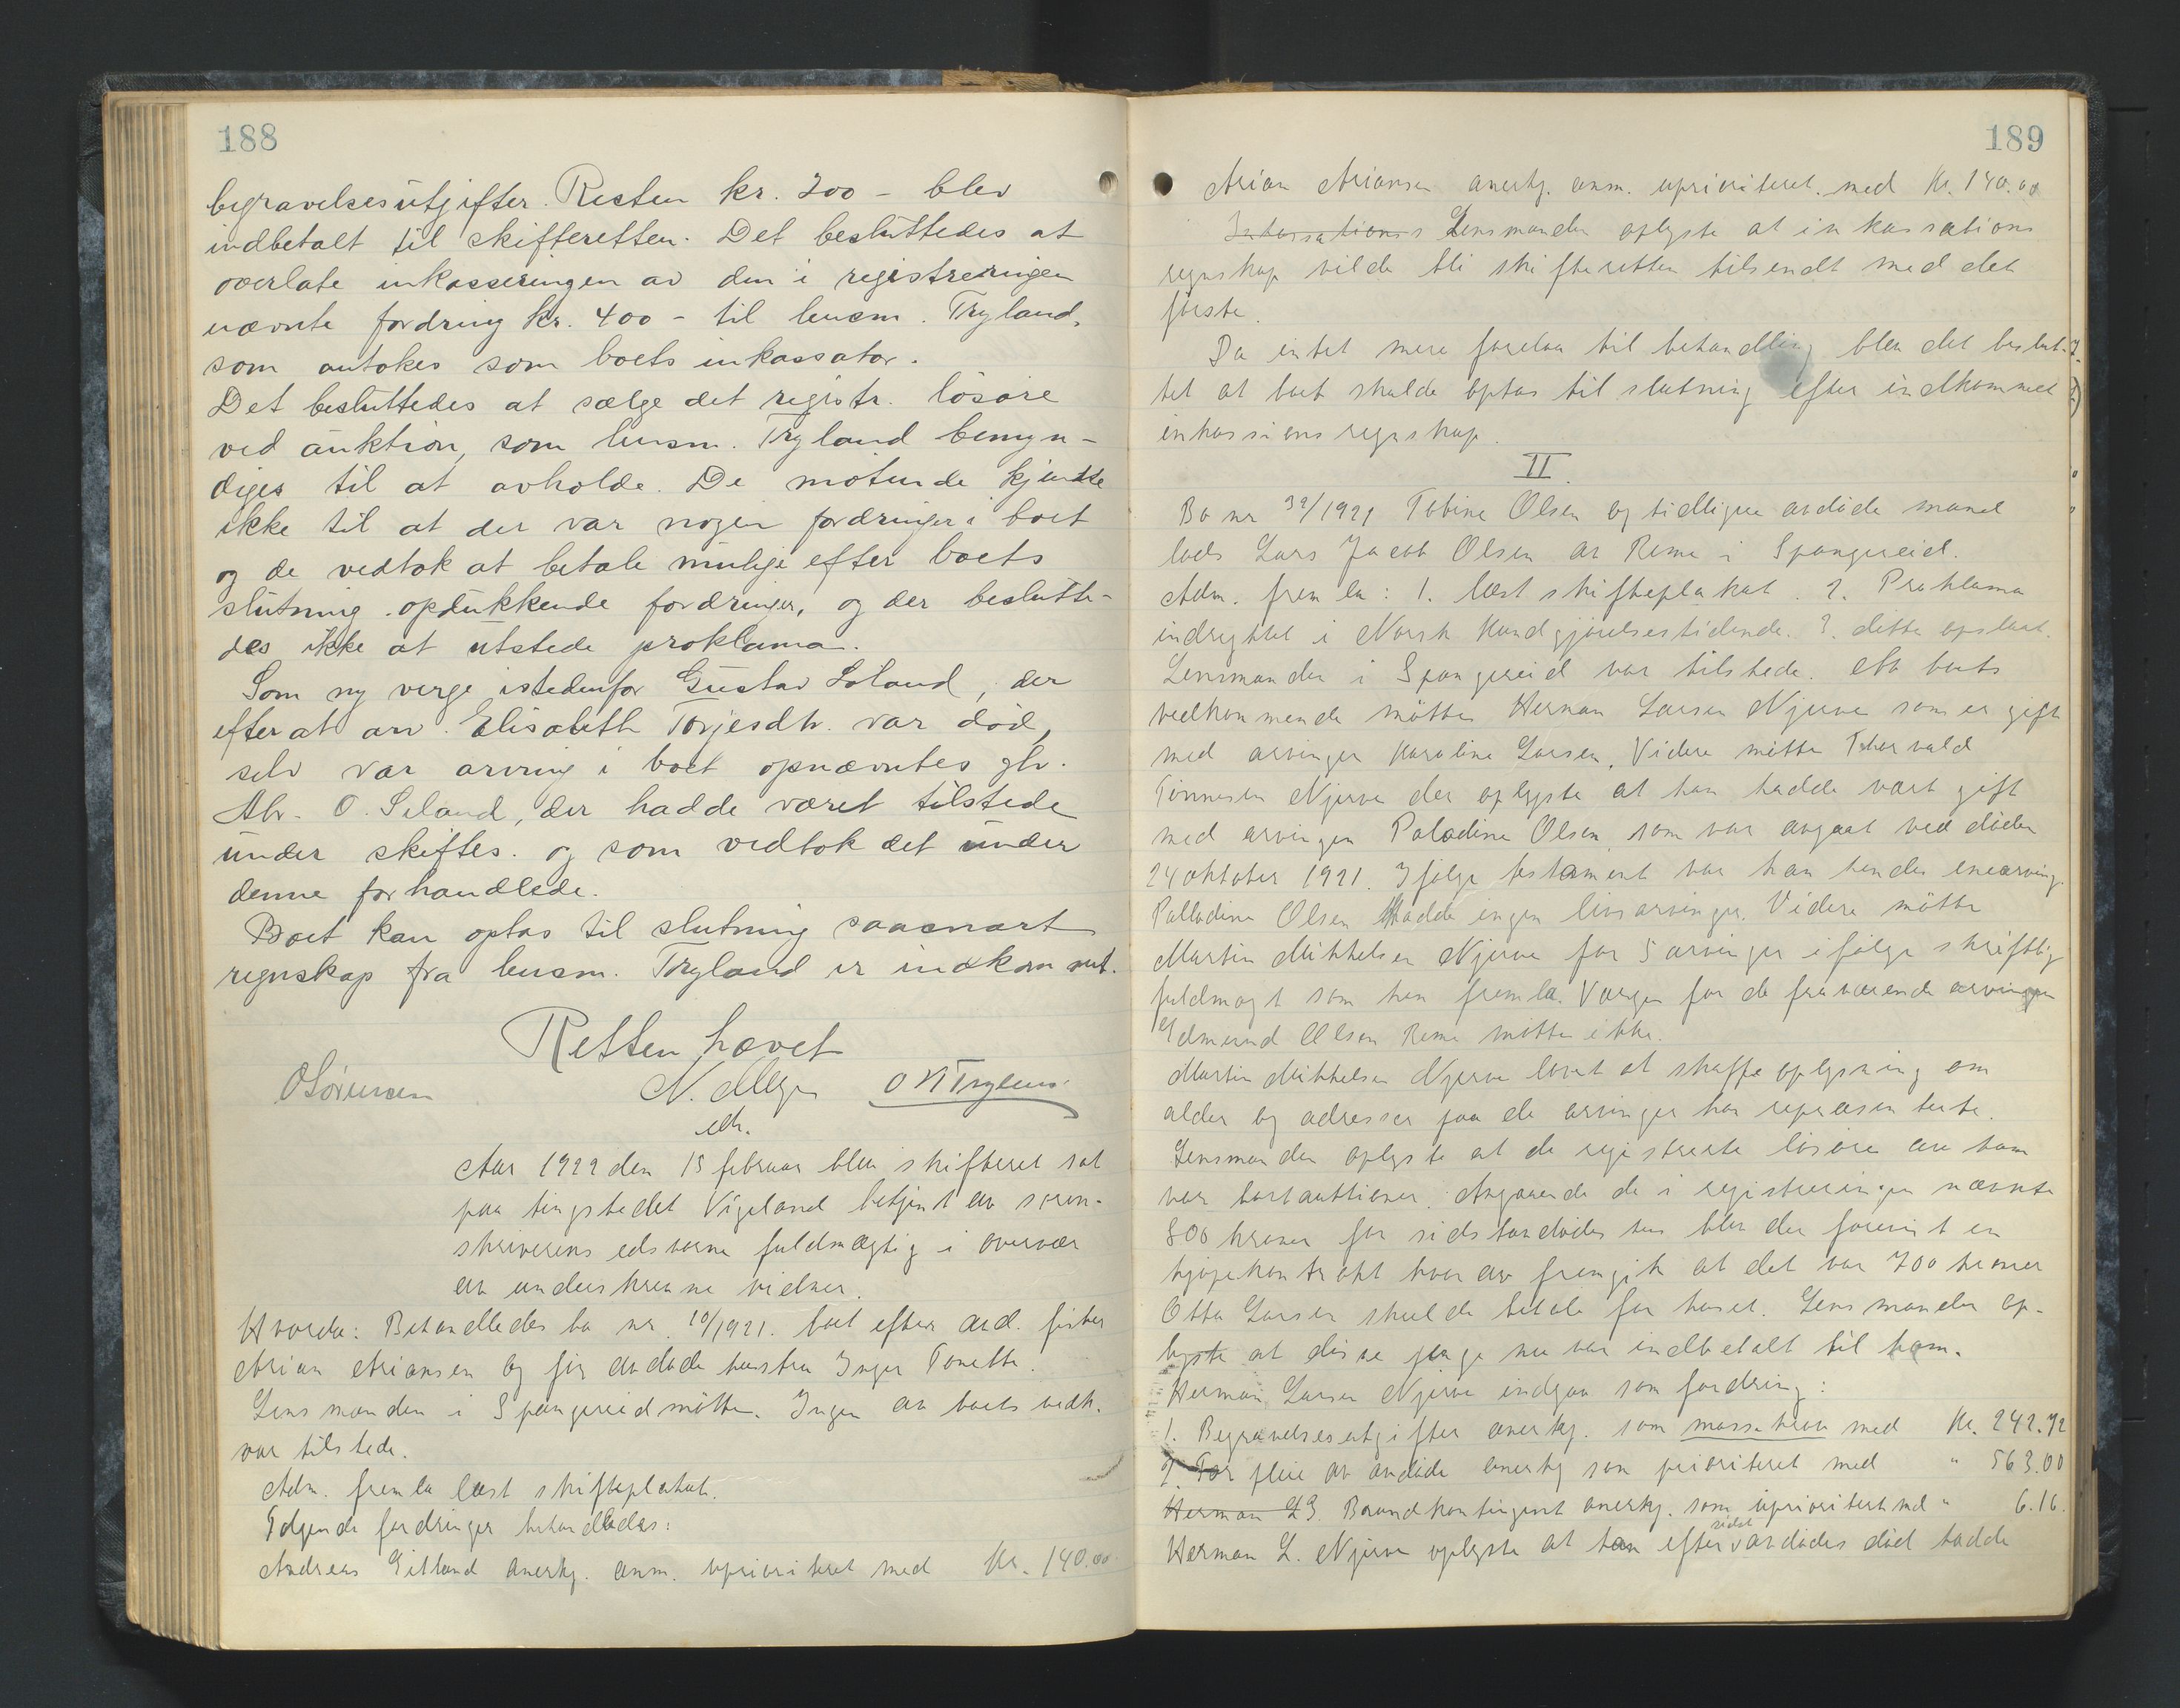 188
begravelsesutgifter. Resten kr. 200 - blev
indbetalt til skifteretten. Det besluttedes at
overlate inkasseringen av den i registreringen
nævnte fordring kr. 400 - til lensm. Tryland,
som antokes som boets inkassator.
Det besluttedes at sælge det registr. løsøre
ved auktion, som lensm. Tryland bemyn-
diges til at avholde. De møtende kjendte
ikke til at der var nogen fordringer i boet
og de vedtok at betale mulige efter boets
slutning opdukkende fordringer, og der beslutte-
des ikke at utstede proklama.
Som ny verge istedenfor Gustav Løland, der
efter at arv. Elisabeth Torjesdtr. var død,
selv var arving i boet opnævntes gbr.
Abr. O. Seland, der hadde været tilstede
under skiftes. og som vedtok det under
denne forhandlede.
Boet kan optas til slutning saasnart
regnskap fra lensm. Tryland er indkommet.
Retten hævet
O Sørensen N. OK Tryland
edr.
Aar 1922 den 15 februar blev skifteret sat
paa tingstedet Vigeland betjent av soren-
skriverens edsvorne fuldmægtig i overvær
av underskrevne vidner.
Hvorda: Behandledes bo nr. 10/1921. boet efter avd. fisker
Arian Ariansen og før avdøde hustru Inger Tonette.
Lensmanden i Spangereid møtte. Ingen av boets vedk.
var tilstede.
Adm. fremla læst skifteplakat.
Følgende fordringer behandledes:
Andreas Gitland anerkj. anm. uprioriteret med Kr. 140.00
189
Arian Ariansen anerkj. anm. uprioriteret med Kr. 140.00
Inkassations Lensmanden oplyste at inkassations
regnskap vilde bli skifteretten tilsendt med det
første.
Da intet mere forelaa til behandling blev det beslut-
tet at boet skulde optas til slutning efter indkommet
inkassions regnskap.
II.
Bo nr 32/1921 Tobine Olsen og tidligere avdøde mand
lods Lars Jacob Olsen av Reme i Spangereid.
Adm. fremla: 1. læst skifteplakat. 2. Proklama
indrykket i Norsk Kundgjørelsestidende. 3. dette opslaat.
Lensmanden i Spangereid var tilstede. Av boets
vedkommende møtte Herman Larsen Njerve som er gift
med arvingen Karoline Larsen. Videre møtte Thorvald
Tønnesen Njerve der oplyste at han hadde vært gift
med arvingen Paladine Olsen, som var avgaat ved døden
24 oktober 1921. Ifølge testament var han hendes enearving.
Palladine Olsen hadde ingen livsarvinger. Videre møtte
Martin Mikkelsen Njerve for 5 arvinger ifølge skriftlig
fuldmagt som han fremla. Vergen for de fraværende arvinger
Edmund Olsen Reme møtte ikke.
Martin Mikkelsen Njerve lovet at skaffe oplysning om
alder og adresser paa de arvinger han repræsenterte.
Lensmanden oplyste at de registrerte løsøre av ham
var bortauktioner. Angaaende de i registreringen nævnte
800 kroner for sidstavdødes hus blev der forevist en
kjøpekontrakt hvorav fremgik at det var 700 kroner
Otto Larsen skulde betale for huset. Lensmanden op-
lyste at disse penge nu var indbetalt til ham.
Herman Larsen Njerve indgaa som fordring:
1. Begravelsesutgifter anerkj. som massekrav med Kr. 242.72
2. For pleie av avdøde anerkj som prioriteret med " 563.00
Herman L 3. Brandkontingent anerkj. som uprioritert med " 6.16.
Herman L. Njerve oplyste at han efter sidst avdødes død hadde